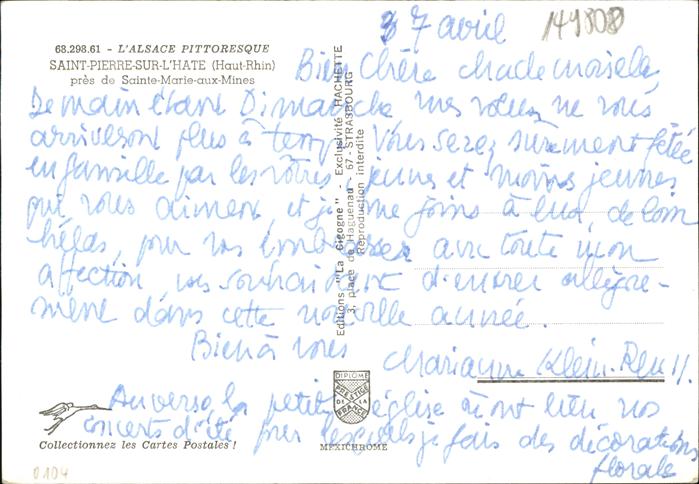 7 avril
149808
68.298.61 - L'ALSACE PITTORESQUE
SAINT-PIERRE-SUR-L'HATE (Haut-Rhin)
près de Sainte-Marie-aux-Mines
Bien chère Mademoiselle
Demain étant Dimanche, mes vœux ne vous
arriveront plus à temps. Vous serez sûrement fêtée
en famille par les vôtres, jeunes et moins jeunes
qui vous aiment et je me joins à eux, de loin
hélas, pour vous embrasser avec toute mon
affection, vous souhaitant d'entrer allègre-
ment dans cette nouvelle année.
Bien à vous
Marianne Klein-Reu
Au verso, la petite église où ont lieu nos
concerts d'été pour lesquels je fais des décorations
florales
Editions "La Cigogne" - Exclusivité HACHETTE
3, place de Haguenau - 67 - STRASBOURG
Reproduction interdite
DIPLOME
PRESTIGE
DE LA
FRANCE
MEXICHROME
Collectionnez les Cartes Postales !
0104